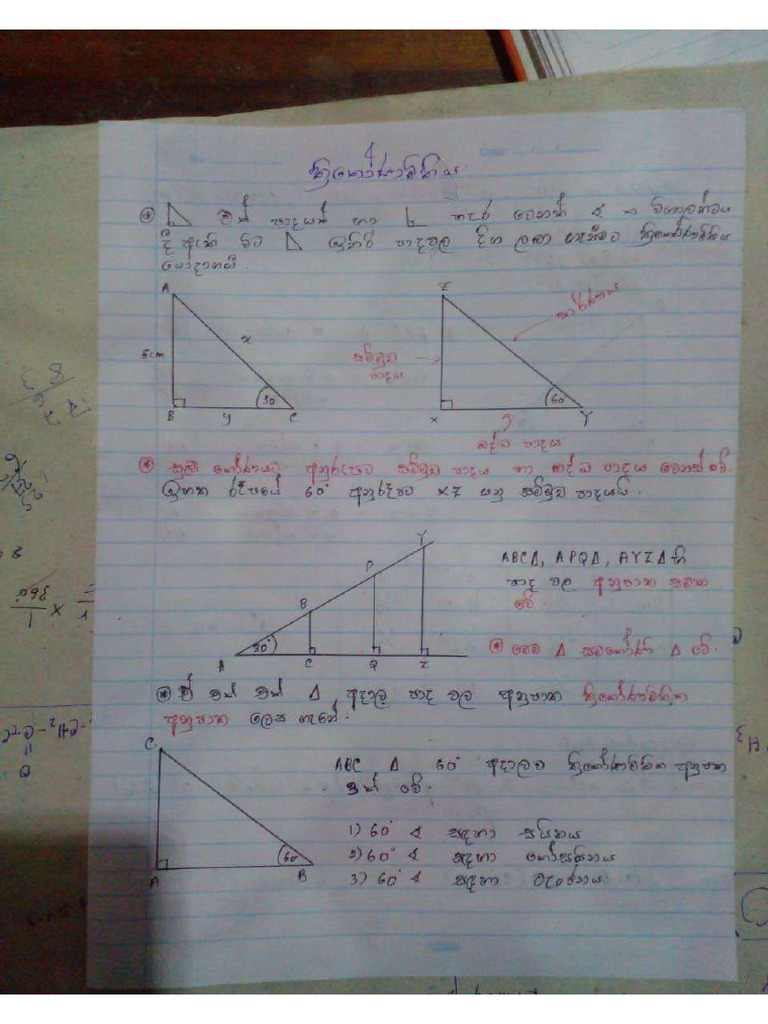 ත්‍රිකෝණමිතිය
එක් පාදයක් හා හැර වෙනත් ∢ ක විශාලත්වය
දී ඇති විට ඉතිරි පාදවල දිග ලබා ගැනීමට ත්‍රිකෝණමිතිය
යොදාගනී.
A
5cm
x
30
B
y
C
Z
කර්ණය
සම්මුඛ
පාදය
60
X
Y
බද්ධ පාදය
සුළු කෝණයට අනුරූපව සම්මුඛ පාදය හා බද්ධ පාදය වෙනස් වේ.
ඉහත රූපයේ 60° අනුරූපව XZ යනු සම්මුඛ පාදයයි.
Y
P
B
30°
A
C
Q
Z
ABCΔ, APQΔ, AYZΔ හි
පාද වල අනුපාත සමාන
වේ.
මෙම Δ සමකෝණී Δ වේ.
ඒ එක් එක් Δ අදාල පාද වල අනුපාත ත්‍රිකෝණමිතික
අනුපාත ලෙස ගැනේ.
C
60
A
B
ABC Δ 60° අදාලව ත්‍රිකෝණමිතික අනුපාත
3ක් වේ.
1) 60° ∢ සඳහා සයිනය
2) 60° ∢ සඳහා කෝසයිනය
3) 60° ∢ සඳහා ටැංජනය